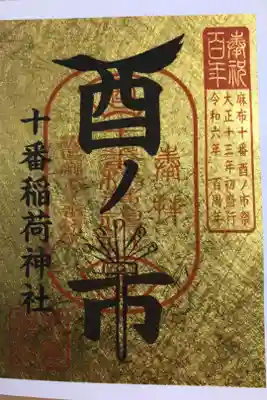 奉祝
百年
麻布十番酉ノ市祭
大正十三年初斎行
令和六年 百周年
奉拝
酉ノ市
十番稲荷神社